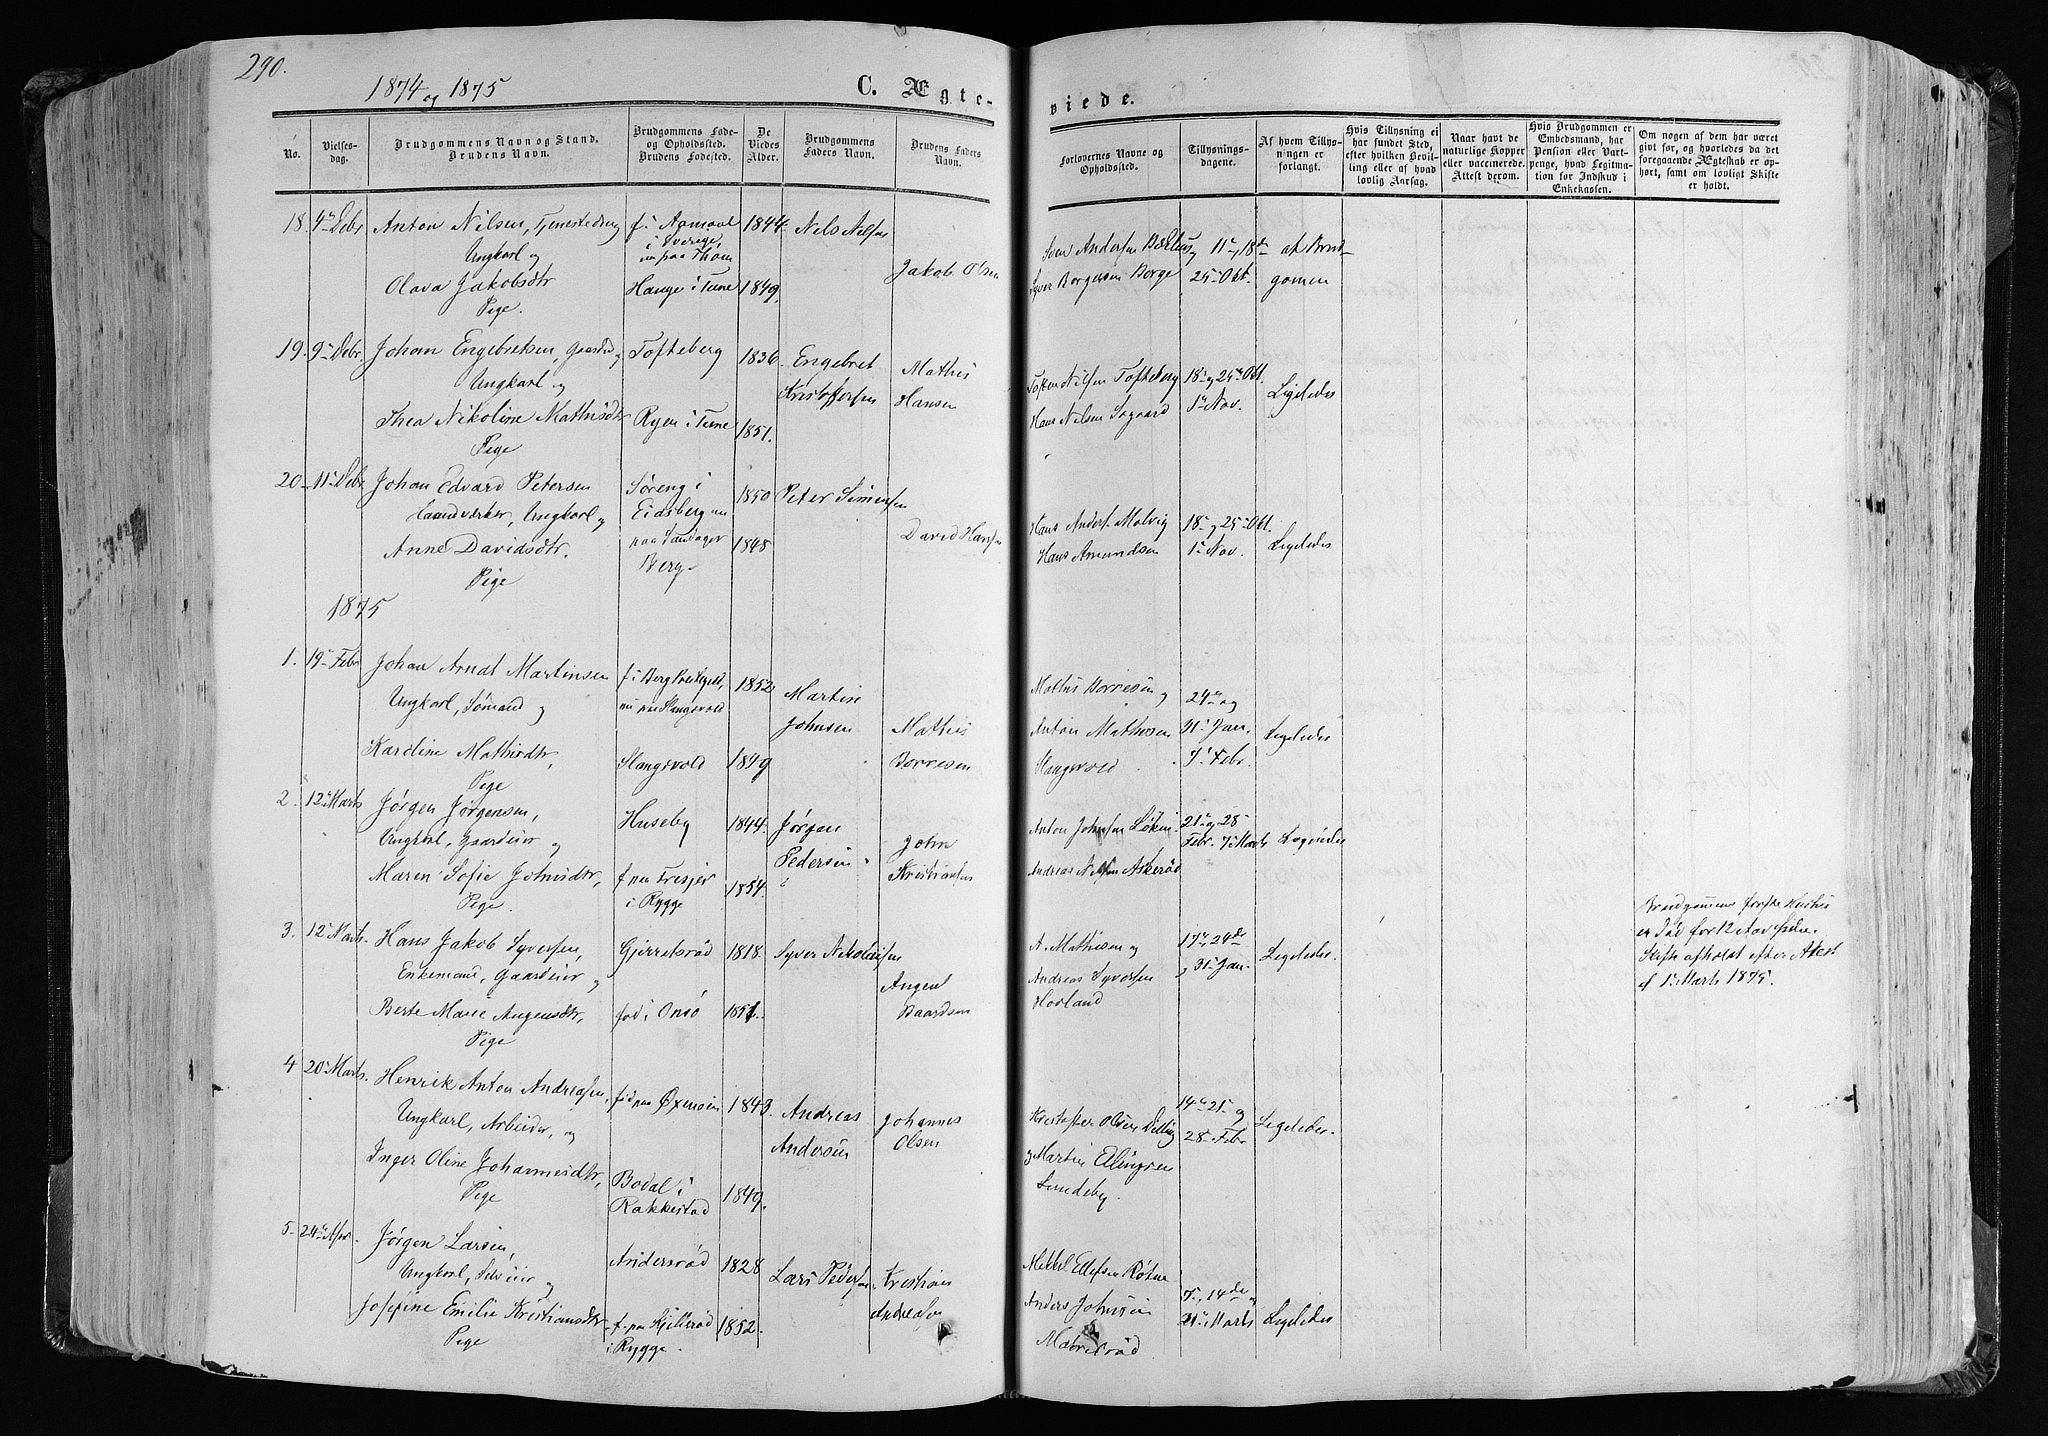 290.
1874 og 1875
C. Ægte-
viede.
No.
Vielses-
dag.
Brudgommens Navn og Stand.
Brudens Navn.
Brudgommens Føde-
og Opholdssted.
Brudens Fødested.
De
Viedes
Alder.
Brudgommens
Faders Navn.
Brudens Faders
Navn.
Forlovernes Navne og
Opholdssted.
Tillysnings-
dagene.
Af hvem Tillys-
ningen er
forlangt.
Hvis Tillysning ei
har fundet Sted,
efter hvilken Bevil-
ling eller af hvad
lovlig Aarsag.
Naar havt de
naturlige Kopper
eller vaccinerede.
Attest derom.
Hvis Brudgommen er
Embedsmand, har
Pension eller Vart-
penge, hvad Legitima-
tion for Indskud i
Enkekassen.
Om nogen af dem har været
gift før, og hvorledes da det
foregaaende Ægteskab er op-
hørt, samt om lovligt Skifte
er holdt.
18. 4de Debr Anton Nilsen, Tjenestedreng f. i Aamaal 1844. Nils Nilsen
Ungkarl og i Sverige,
nu paa Thom
Olava Jakobsdtr Hauge i Tune 1849. Jakob Olsen
Pige.
Sven Andersen 11te, 18de af Brud-
Syver Borgersen Borge 25de Okt. gomen
19. 9de Debr. Johan Engebretsen, Tofteberg 1836. Engebret Mathis
Ungkarl og Kristoffersen Hansen
Thea Nikoline Mathisdtr Ryen i Tune 1851.
Pige
Nilsen Tofteberg 18de og 25de Okt. Ligeledes
Hans Nilsen 1ste Nov.
20. 11te Debr Johan Edvard Petersen Søreng i 1850 Peter Simensen
Haandværker, Ungkarl og Eidsberg nu David Hansen
Anne Davidsdtr. paa 1848
Pige Berg.
Hans Anders. Molvig 18de og 25de Okt.
Hans Amundsen 1ste Nov. Ligeledes
1875
1. 19de Febr Johan Arndt Martinsen f. i Berg Prestegjeld, 1852 Martin
Ungkarl, Sømand og nu paa Slangsvold Johnsen
Karoline Mathisdtr, Slangsvold 1849 Mathis
Pige Borresen
Mathis Borresen og 24de og
Anton Mathisen 31te Jan. Ligeledes
Slangsvold 7de Febr.
2. 12te Marts Jørgen Jørgensen, Huseby 1844. Jørgen John
Ungkarl, Gaardeier og Pedersen Kristiansen
Maren Sofie Johnsdtr, f. paa 1854.
Pige. i Rygge
Anton Johnsen Løken 21de og 28de
Febr. 7de Marts Ligeledes
Andreas Nilsen Askerød
3. 12te Marts. Hans Jakob Syversen, Gjerretsrød 1818. Syver Nikolaisen
Enkemand, Gaardeier og Angent
Berte Marie Angensdtr, fød i Onsø 1851. Baardsen
Pige
A. Mathisen og 17de, 24de Ligeledes.
Andreas Syversen og 31te Jan.
Hovland
Brudgommens forste Hustru
er død for 12 Aar siden.
Skifte afholdt efter Attest
af 1ste Marts 1875.
4 20de Marts. Henrik Anton Andreassen, fød paa 1843. Andreas Johannes
Ungkarl, Arbeider, og Andersen Olsen
Inger Oline Johannesdtr, Bodal i 1849.
Pige Rakkestad
Kristoffer Olsen Dilling 14de 21de og Ligeledes.
og Martin 28de Febr
Lundeby.
5. 24de Apr. Jørgen Larsen, Andersrød 1828 Lars Pedersen Kristian
Ungkarl, Selveier og Andreasen
Josefine Emilie Kristiansdtr f. paa Hjellerød 1852.
Pige i Rygge.
Mikkel Ellefsen
7de, 14de og Ligeledes
Anders Johnsen 21de Marts